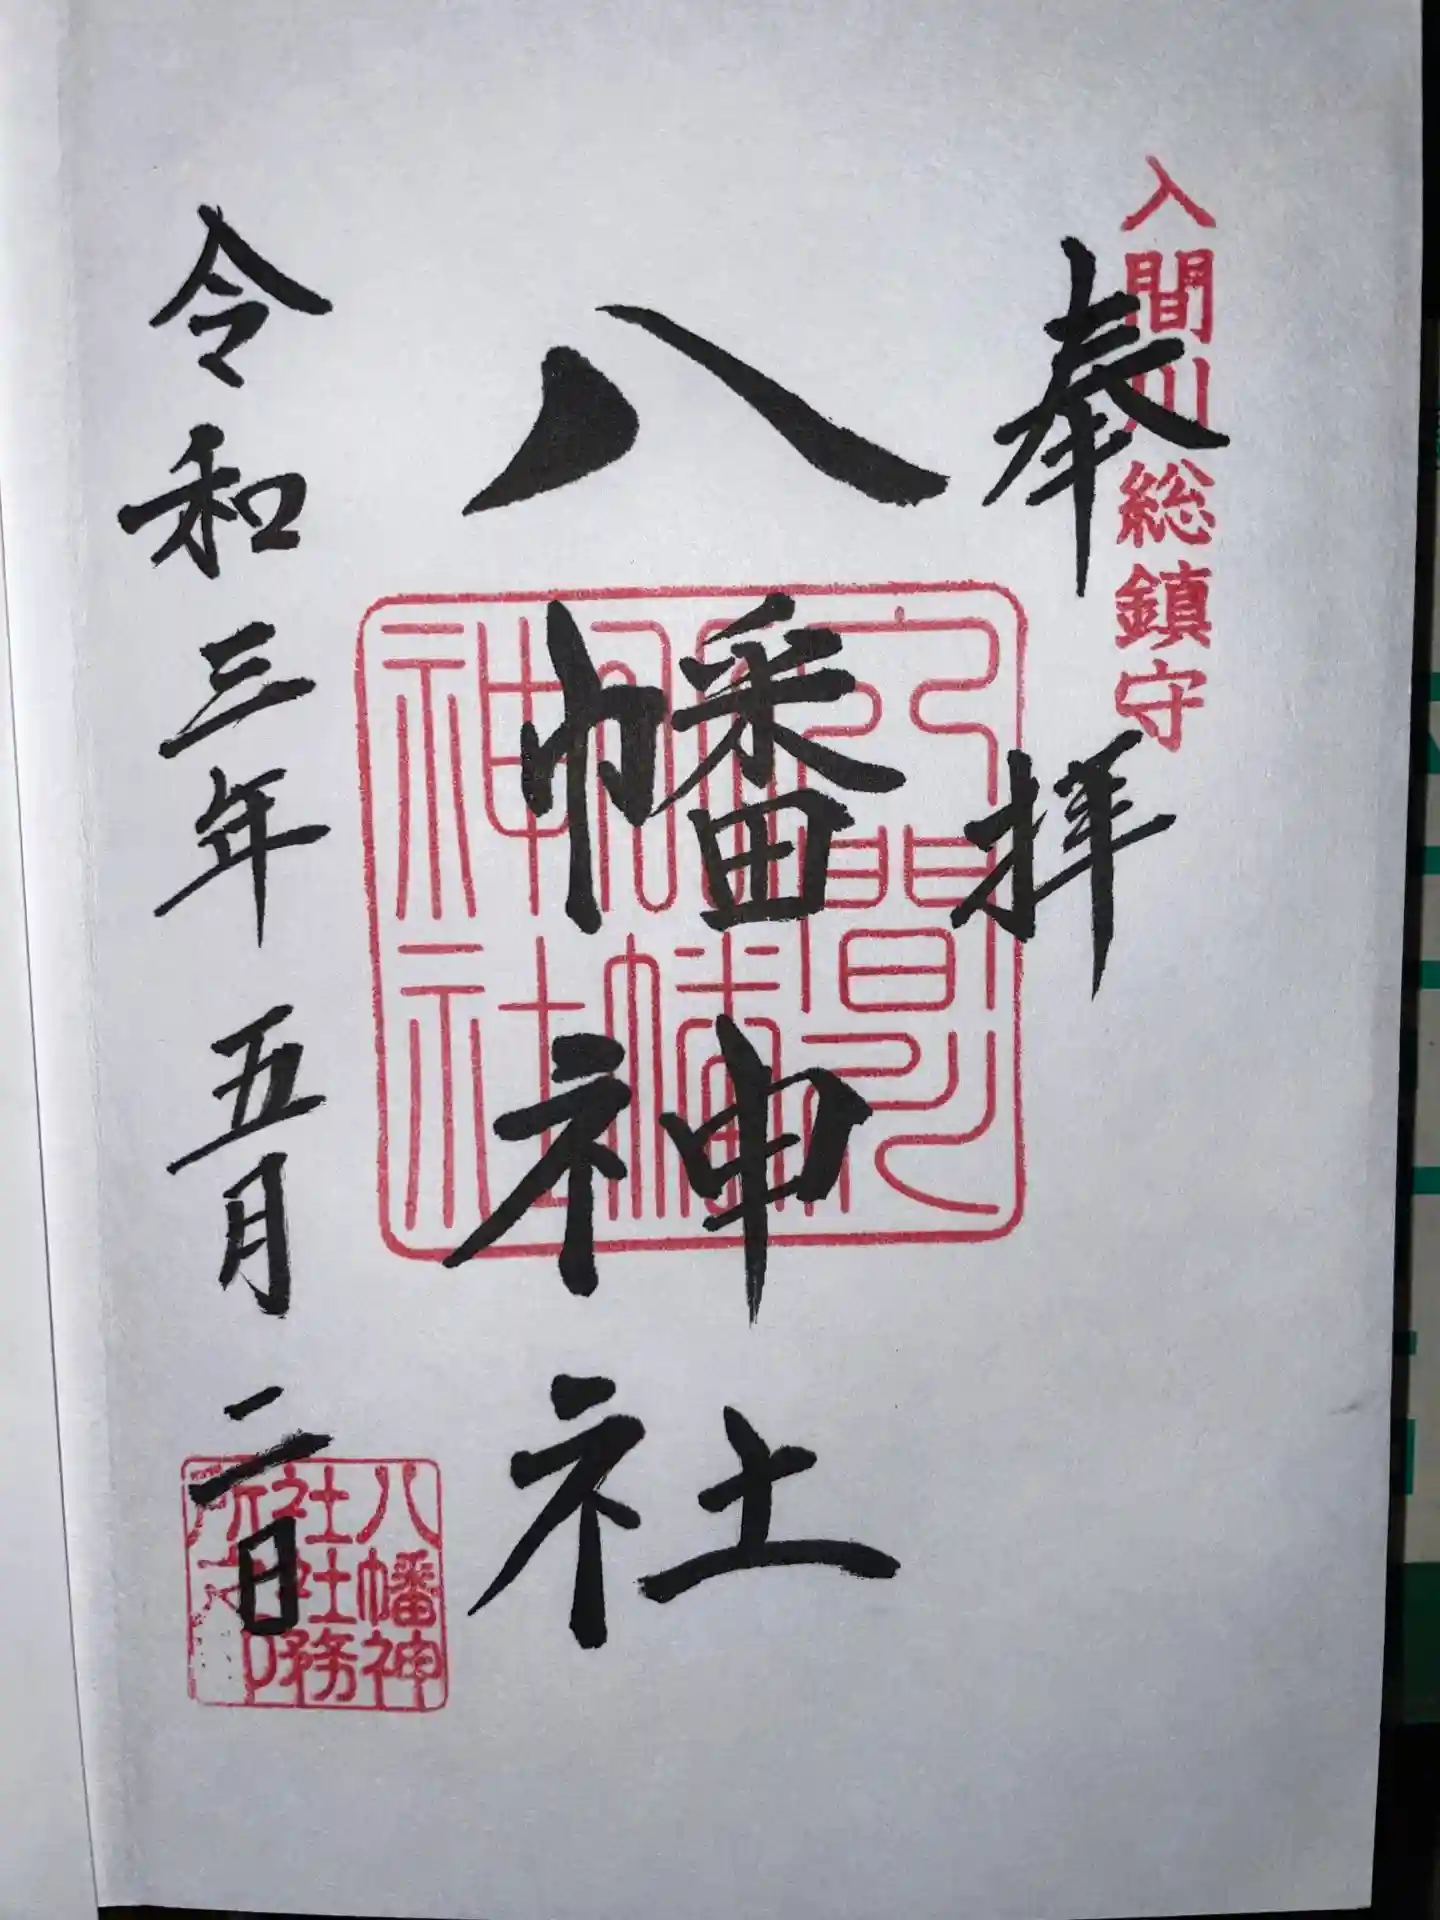 入間川総鎮守
奉拝
八幡神社
令和三年五月二日
八幡神
社社務
所之印